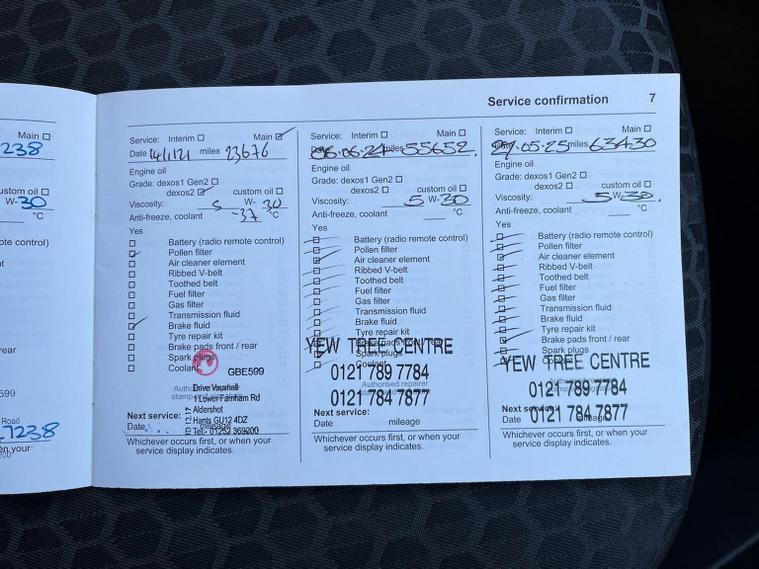 Main
238
ustom oil
W-30
°C
ote control)
t
rear
599
Road
7238
en your
Service confirmation 7
Service: Interim Main
Date 14/1/21 miles 23676
Engine oil
Grade: dexos1 Gen2
dexos2 custom oil
Viscosity: 5 W- 30
Anti-freeze, coolant -37 °C
Yes
Battery (radio remote control)
Pollen filter
Air cleaner element
Ribbed V-belt
Toothed belt
Fuel filter
Gas filter
Transmission fluid
Brake fluid
Tyre repair kit
Brake pads front / rear
Spark plugs
Coolant
GBE599
Drive Vauxhall
Lower Farnham Rd
Aldershot
Hants GU12 4DZ
Tel:- 01252 369200
Next service:
Date mileage
Whichever occurs first, or when your
service display indicates.
Service: Interim Main
Date 06.06.24 miles 55652.
Engine oil
Grade: dexos1 Gen2
dexos2 custom oil
Viscosity: 5 W-30
Anti-freeze, coolant °C
Yes
Battery (radio remote control)
Pollen filter
Air cleaner element
Ribbed V-belt
Toothed belt
Fuel filter
Gas filter
Transmission fluid
Brake fluid
Tyre repair kit
Brake pads front / rear
Spark plugs
Coolant
YEW TREE CENTRE
0121 789 7784
Authorised repairer
0121 784 7877
Next service:
Date mileage
Whichever occurs first, or when your
service display indicates.
Service: Interim Main
.05.25 miles 63430
Engine oil
Grade: dexos1 Gen2
dexos2 custom oil
Viscosity: 5 W-30.
Anti-freeze, coolant °C
Yes
Battery (radio remote control)
Pollen filter
Air cleaner element
Ribbed V-belt
Toothed belt
Fuel filter
Gas filter
Transmission fluid
Brake fluid
Tyre repair kit
Brake pads front / rear
Spark plugs
YEW TREE CENTRE
0121 789 7784
0121 784 7877
Next service:
Date mileage
Whichever occurs first, or when your
service display indicates.